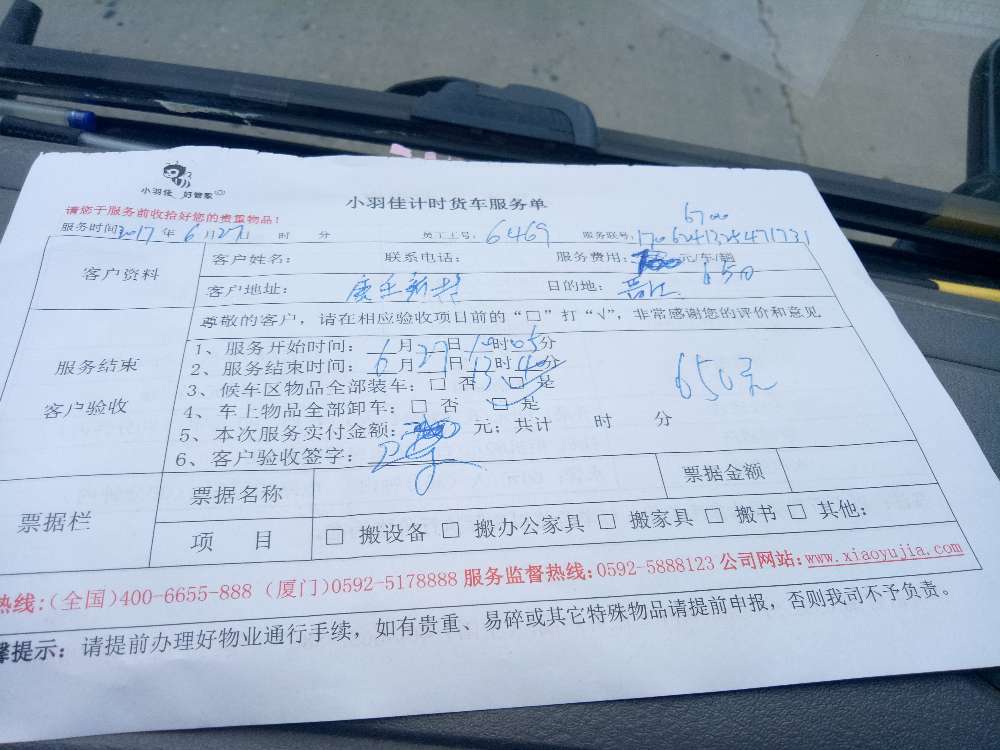 小羽佳 好管家
小羽佳计时货车服务单
请您于服务前收拾好您的贵重物品！
6700
服务时间2017年6月27日 时 分 员工工号：6469 服务联号：
客户资料
客户姓名： 联系电话： 服务费用： 元/车/辆
650
客户地址： 目的地：晋江
服务结束
客户验收
尊敬的客户，请在相应验收项目前的“□”打“√”，非常感谢您的评价和意见
1、服务开始时间：6月27日10时05分
2、服务结束时间：6月27日13时40分
3、候车区物品全部装车：□ 否 □ 是
4、车上物品全部卸车：□ 否 □ 是
5、本次服务实付金额： 元；共计 时 分
650元
6、客户验收签字：
票据栏
票据名称 票据金额
项 目 □ 搬设备 □ 搬办公家具 □ 搬家具 □ 搬书 □ 其他：
热线：(全国)400-6655-888 (厦门)0592-5178888 服务监督热线：0592-5888123 公司网站：www.xiaoyujia.com
馨提示：请提前办理好物业通行手续，如有贵重、易碎或其它特殊物品请提前申报，否则我司不予负责。